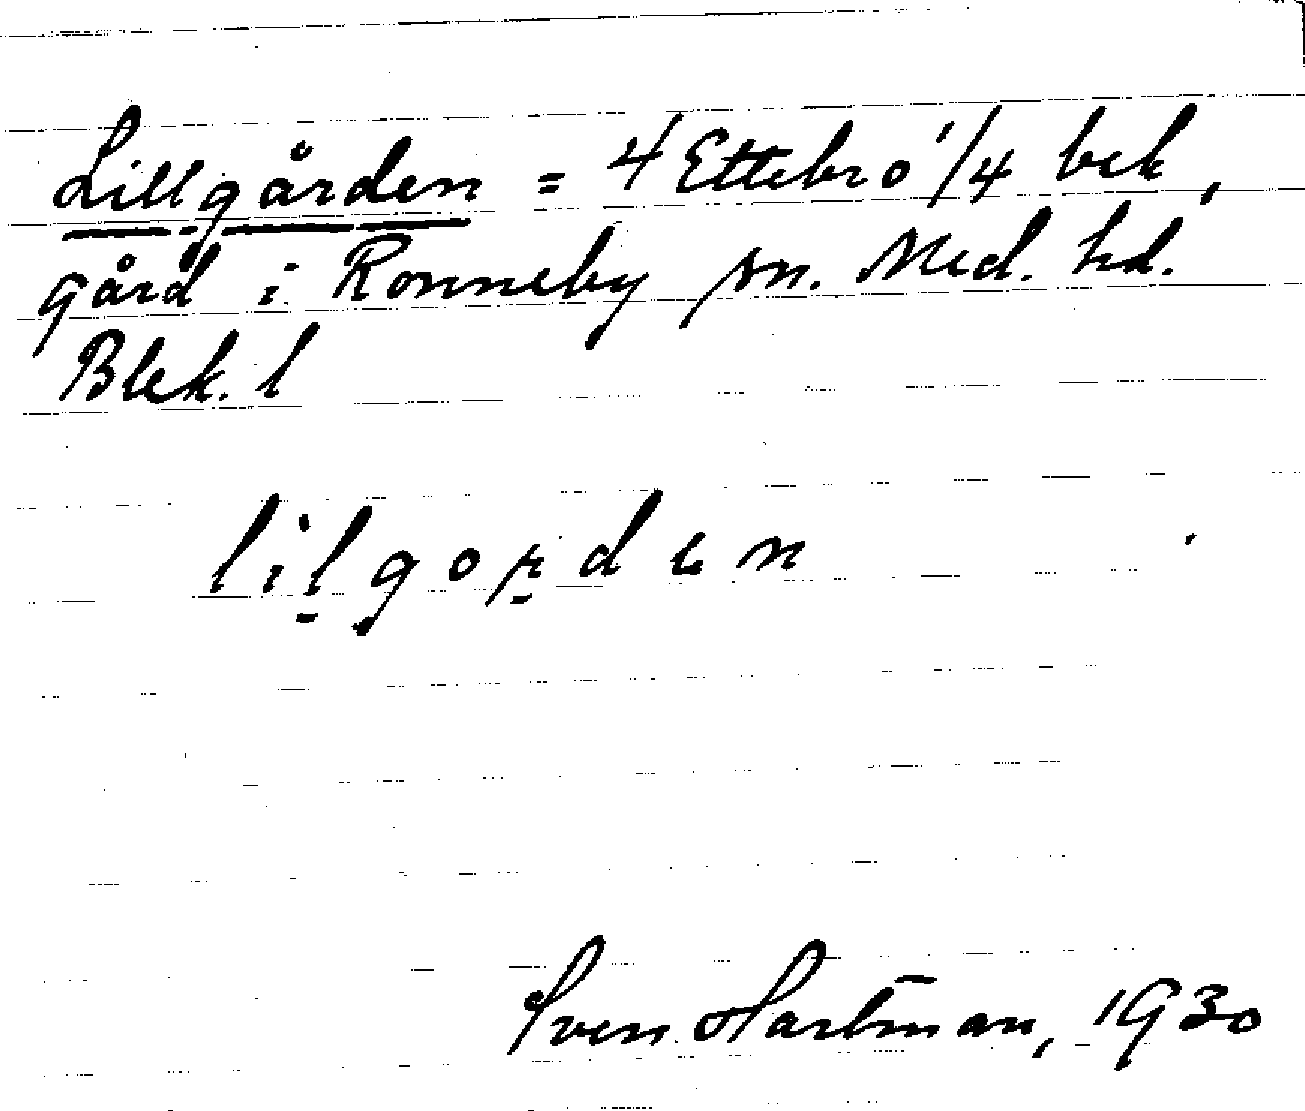 Lillgården = 4 Ettebro 1/4 bek,
gård i Ronneby sn. Med. hd.
Blek. l
lil̠gor̠dɛn
Sven Hartman, 1930